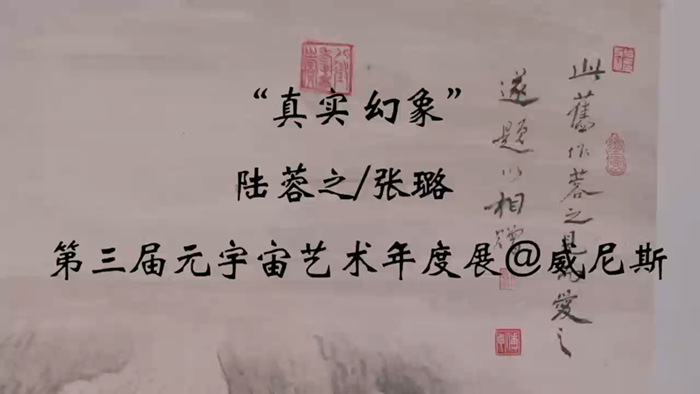 “真实 幻象”
陆蓉之/张璐
第三届元宇宙艺术年度展@威尼斯
此舊作蓉之 愛之
遂題以相贈